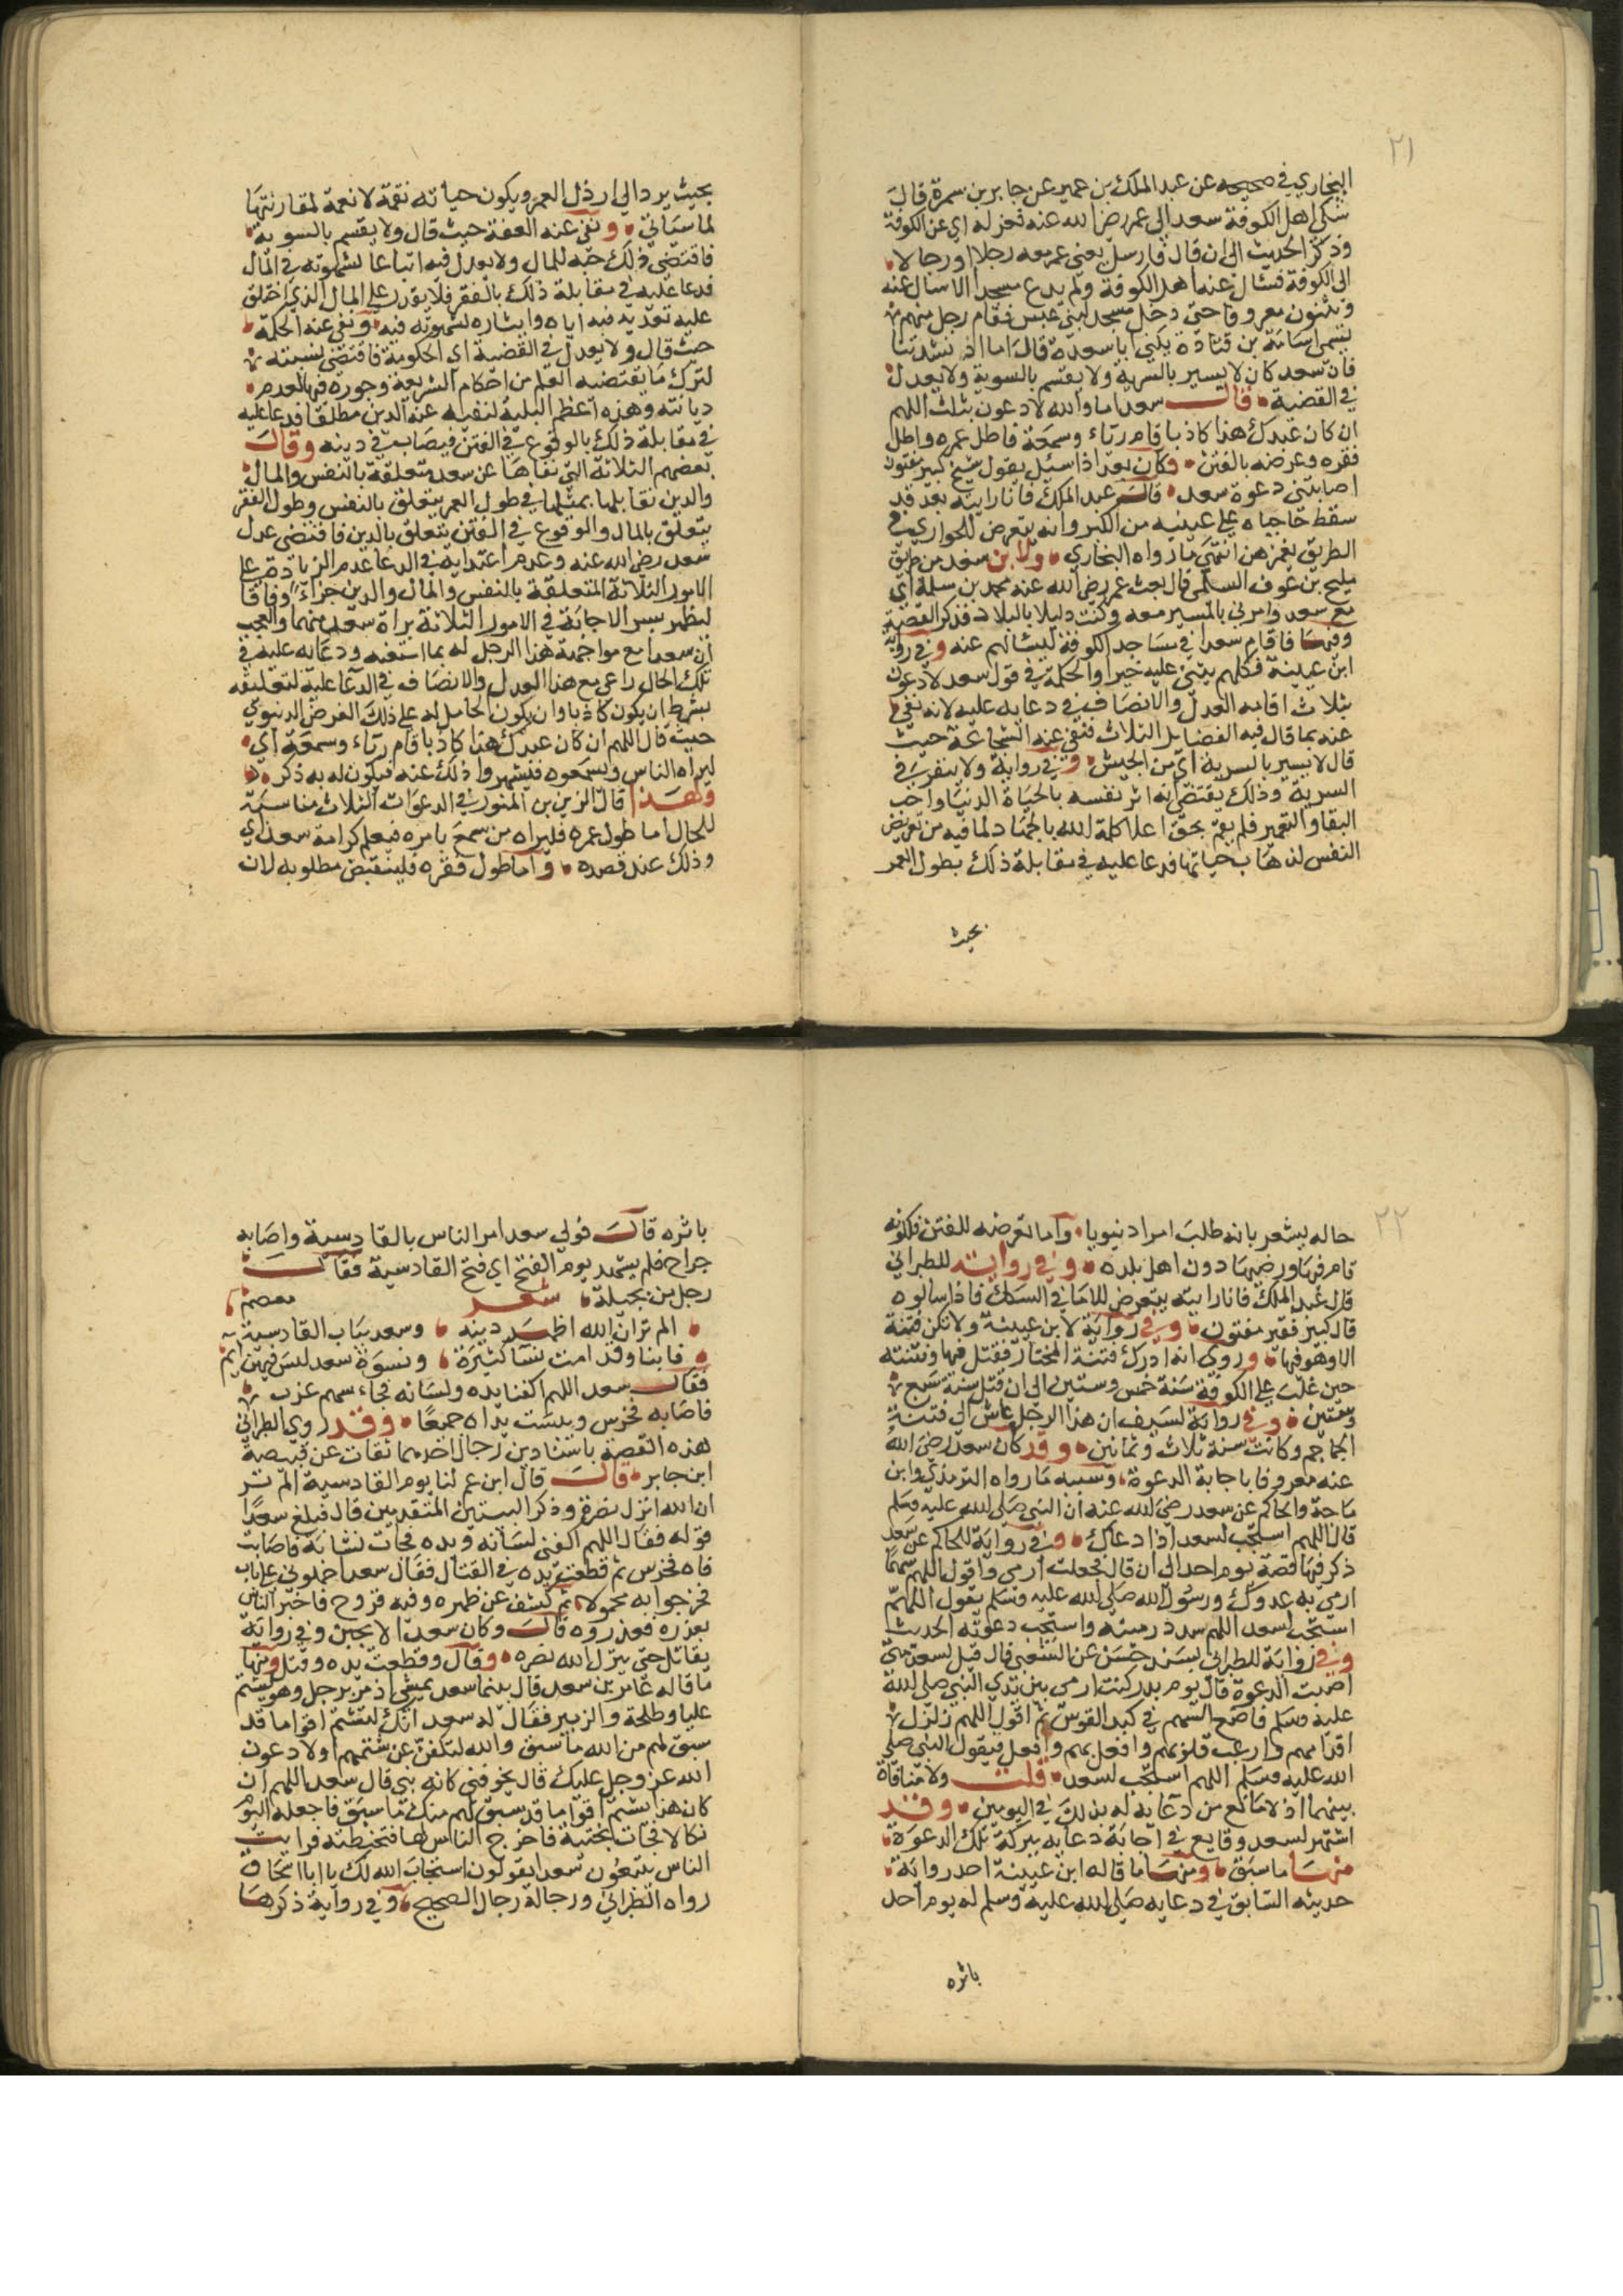 ٢١
البخاري في صحيحه عن عبد الملك بن عمير عن جابر بن سمرة قال
شكى اهل الكوفة سعدا الى عمر رضي الله عنه فعزله اي عن الكوفة
وذكر الحديث الى ان قال فارسل يعني عمر معه رجلا او رجالا
الى الكوفة فسال عنه اهل الكوفة ولم يدع مسجدا الا سال عنه
ويثنون معروفا حتى دخل مسجد لبني عبس فقام رجل منهم
يسمى اسامة بن قتادة يكنى ابا سعدة قال اما اذ نشدتنا
فان سعد كان لا يسير بالسرية ولا يقسم بالسوية ولا يعدل
في القضية قال سعد اما والله لادعون بثلث اللهم
ان كان عبدك هذا كاذبا قام رياء وسمعة فاطل عمره واطل
فقره وعرضه بالفتن وكان بعد اذا سئل يقول شيخ كبير مفتون
اصابتني دعوة سعد قال عبد الملك فانا رايته بعد قد
سقط حاجباه على عينيه من الكبر وانه يتعرض للجواري في
الطريق يغمزهن انتهى ما رواه البخاري ولابن سعد من طريق
مليح بن عوف السلمي قال بعث عمر رضي الله عنه محمد بن سلمة اي
مع سعد وامرني بالمسير معه وكنت دليلا بالبلاد فذكر القصة
وفيها فاقام سعدا في مساجد الكوفة ليسالهم عنه وفي رواية
ابن عيينة فكلهم يثني عليه خيرا والحكمة في قول سعد لادعون
بثلاث اقامه العدل والانصاف في دعايه عليه لانه نفى
عنه بما قال فيه الفضايل الثلاث فنفى عنه الشجاعة حيث
قال لا يسير بالسرية اي من الجيش وفي رواية ولا ينفر في
السرية وذلك يقتضي انه اثر نفسه بالحياة الدنيا واحب
البقا والتعمير فلم يقم بحق اعلا كلمة الله بالجهاد لما فيه من تعريض
النفس لذهاب حياتها فدعا عليه في مقابلة ذلك بطول العمر
بحيث
بحيث يرد الى ارذل العمر ويكون حياته نقمة لا نعمة لمقارنتها
لما سياتي ونفى عنه العفة حيث قال ولا يقسم بالسوية
فاقتضى ذلك حبه للمال ولا يعدل فيه اتباعا لشهوته في المال
فدعا عليه في مقابلة ذلك بالفقر فلا يقدر على المال الذي اختلق
عليه تعديه فيه اياه وايثاره لشهوته فيه ونفى عنه الحكمة
حيث قال ولا يعدل في القضية اي الحكومة فاقتضى نسبته
لترك ما يقتضيه العلم من احكام الشريعة وجوره فيها لعدم
ديانته وهذه اعظم البلية لنفيه عنه الدين مطلقا فدعا عليه
في مقابلة ذلك بالوقوع في الفتن فيصاب في دينه وقال
بعضهم الثلاثة التي نفاها عن سعد متعلقة بالنفس والمال
والدين فقابلها بمثلها في طول العمر يتعلق بالنفس وطول الفقر
يتعلق بالمال والوقوع في الفتن يتعلق بالدين فاقتضى عدل
سعد رضي الله عنه وعدم اعتدايه في الدعا عدم الزيادة على
الامور الثلاثة المتعلقة بالنفس والمال والدين جزاء وفاقا
ليظهر بسر الاجابة في الامور الثلاثة براة سعد منها والعجب
ان سعدا مع مواجهة هذا الرجل له بما اسغبه ودعايه عليه في
تلك الحال راعى مع هذا العدل والانصاف في الدعا عليه لتعليقه
بشرط ان يكون كاذبا وان يكون الحامل له على ذلك الغرض الدنيوي
حيث قال اللهم ان كان عبدك هذا كاذبا قام رياء وسمعة اي
ليراه الناس ويسمعوه فيشهروا ذلك عنه فيكون له به ذكر
وهذا قال الزين بن المنور في الدعوات الثلاث مناسبة
للحال اما طول عمره فليراه من سمع بامره فيعلم كرامة سعد اي
وذلك عند قصده واما طول فقره فلينتقض مطلوبه لان
٢٢
حاله يشعر بانه طلب امرا دنيويا واما تعرضه للفتن فلكونه
قام فيها ورضيها دون اهل بلده وفي رواية للطبراني
قال عبد الملك فانا رايته يتعرض للاما في السكك فاذا سالوه
قال كبير فقير مفتون وفي رواية لابن عيينة ولا تكن فتنة
الا وهو فيها وروي انه ادرك فتنة المختار فقتل فيها وفتنته
حين غلب على الكوفة سنة خمس وستين الى ان قتل سنة سبع
وستين وفي رواية لسيف ان هذا الرجل عاش الى فتنة
الجماجم وكانت سنة ثلاث وثمانين وقد كان سعد رضي الله
عنه معروفا باجابة الدعوة وسببه ما رواه الترمذي وابن
ماجة والحاكم عن سعد رضي الله عنه ان النبي صلى الله عليه وسلم
قال اللهم استجب لسعد اذا دعاك وفي رواية للحاكم عن سعد
ذكر فيها قصة يوم احد الى ان قال فجعلت ارمي واقول اللهم سهما
ارمي به عدوك ورسول الله صلى الله عليه وسلم يقول اللهم
استجب لسعد اللهم سدد رميته واستجب دعوته الحديث
وفي رواية للطبراني بسند حسن عن الشعبي قال قيل لسعد متى
اصبت الدعوة قال يوم بدر كنت ارمي بين يدي النبي صلى الله
عليه وسلم فاضع السهم في كبد القوس ثم اقول اللهم زلزل
اقدامهم وارعب قلوبهم وافعل بهم وافعل فيقول النبي صلى
الله عليه وسلم اللهم استجب لسعد قلت ولا منافاة
بينهما اذ لا مانع من دعايه له بذلك في اليومين وقد
اشتهر لسعد وقايع في اجابة دعايه ببركة تلك الدعوة
منها ما سبق ومنها ما قاله ابن عيينة احد رواية
حديثه السابق في دعايه صلى الله عليه وسلم له يوم احد
باثره
باثره قال فولي سعد امر الناس بالقادسية واصابه
جراح فلم يشهد يوم الفتح اي فتح القادسية فقال
رجل من بجيلة شعر
الم تر ان الله اظهر دينه وسعد بباب القادسية معصم
فابنا وقد امت نسا كثيرة ونسوة سعد ليس فيهن ايم
فقال سعد اللهم اكفنا يده ولسانه فجاء سهم غرب
فاصابه فخرس ويبست يداه جميعا وقد روي الطبراني
هذه القصة باسنادين رجال احدهما ثقات عن قبيصة
ابن جابر قال قال ابن عم لنا يوم القادسية الم تر
ان الله انزل نصره وذكر البيتين المتقدمين قال فبلغ سعدا
قوله فقال اللهم اكفني لسانه ويده فجات نشابة فاصابت
فاه فخرس ثم قطعت يده في القتال فقال سعد احملوني على باب
فخرجوا به محمولا ثم كشف عن ظهره وفيه قروح فاخبر الناس
بعذره فعذروه قال وكان سعد الا يجبن وفي رواية
يقاتل حتى ينزل الله نصره وقال وقطعت يده وقتل ومنها
ما قاله عامر بن سعد قال بينما سعد يمشي اذ مر برجل وهو يشتم
عليا وطلحة والزبير فقال له سعد انك لتشتم اقواما قد
سبق لهم من الله ما سبق والله لتكفن عن شتمهم او لادعون
الله عز وجل عليك قال يخوفني كانه نبي قال سعد اللهم ان
كان هذا يشتم اقواما قد سبق لهم منك ما سبق فاجعله اليوم
نكالا فجات بختية فافرج الناس لها فتخبطته فرايت
الناس يتبعون سعدا يقولون استجاب الله لك يا ابا اسحاق
رواه الطبراني ورجاله رجال الصحيح وفي رواية ذكرها